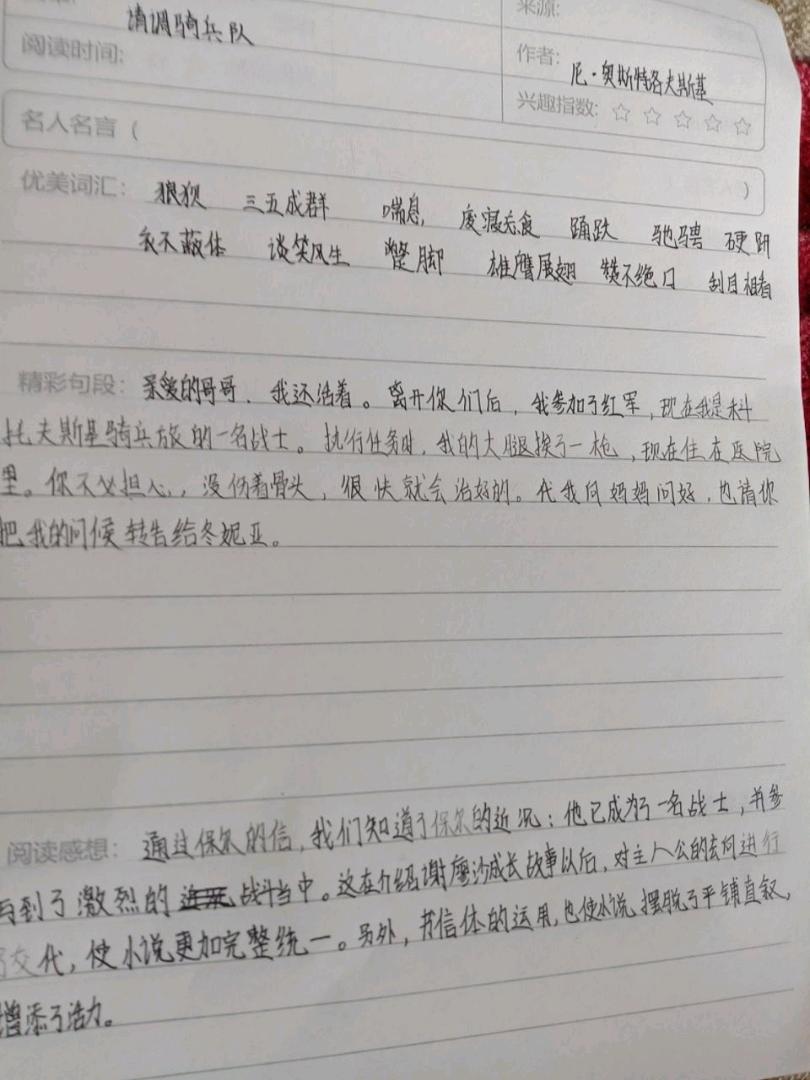 来源:
请调骑兵队
阅读时间:
作者: 尼·奥斯特洛夫斯基
兴趣指数: ☆ ☆ ☆ ☆ ☆
名人名言 ( )
优美词汇: 狼狈 三五成群 喘息 废寝忘食 踊跃 驰骋 硬
衣不蔽体 谈笑风生 蹩脚 雄鹰展翅 赞不绝口 刮目相看
精彩句段: 亲爱的哥哥、我还活着。离开你们后,我参加了红军,现在我是科
托夫斯基骑兵旅的一名战士。执行任务时,我的大腿挨了一枪,现在住在医院
里。你不必担心,没伤着骨头,很快就会治好的。代我向妈妈问好,也请你
把我的问候转告给冬妮亚。
阅读感想: 通过保尔的信,我们知道了保尔的近况:他已成为了一名战士,并参
与到了激烈的 战斗当中。这在介绍谢廖沙成长故事以后,对主人公的去向进行
了交代,使小说更加完整统一。另外,书信体的运用,也使小说摆脱了平铺直叙,
增添了活力。